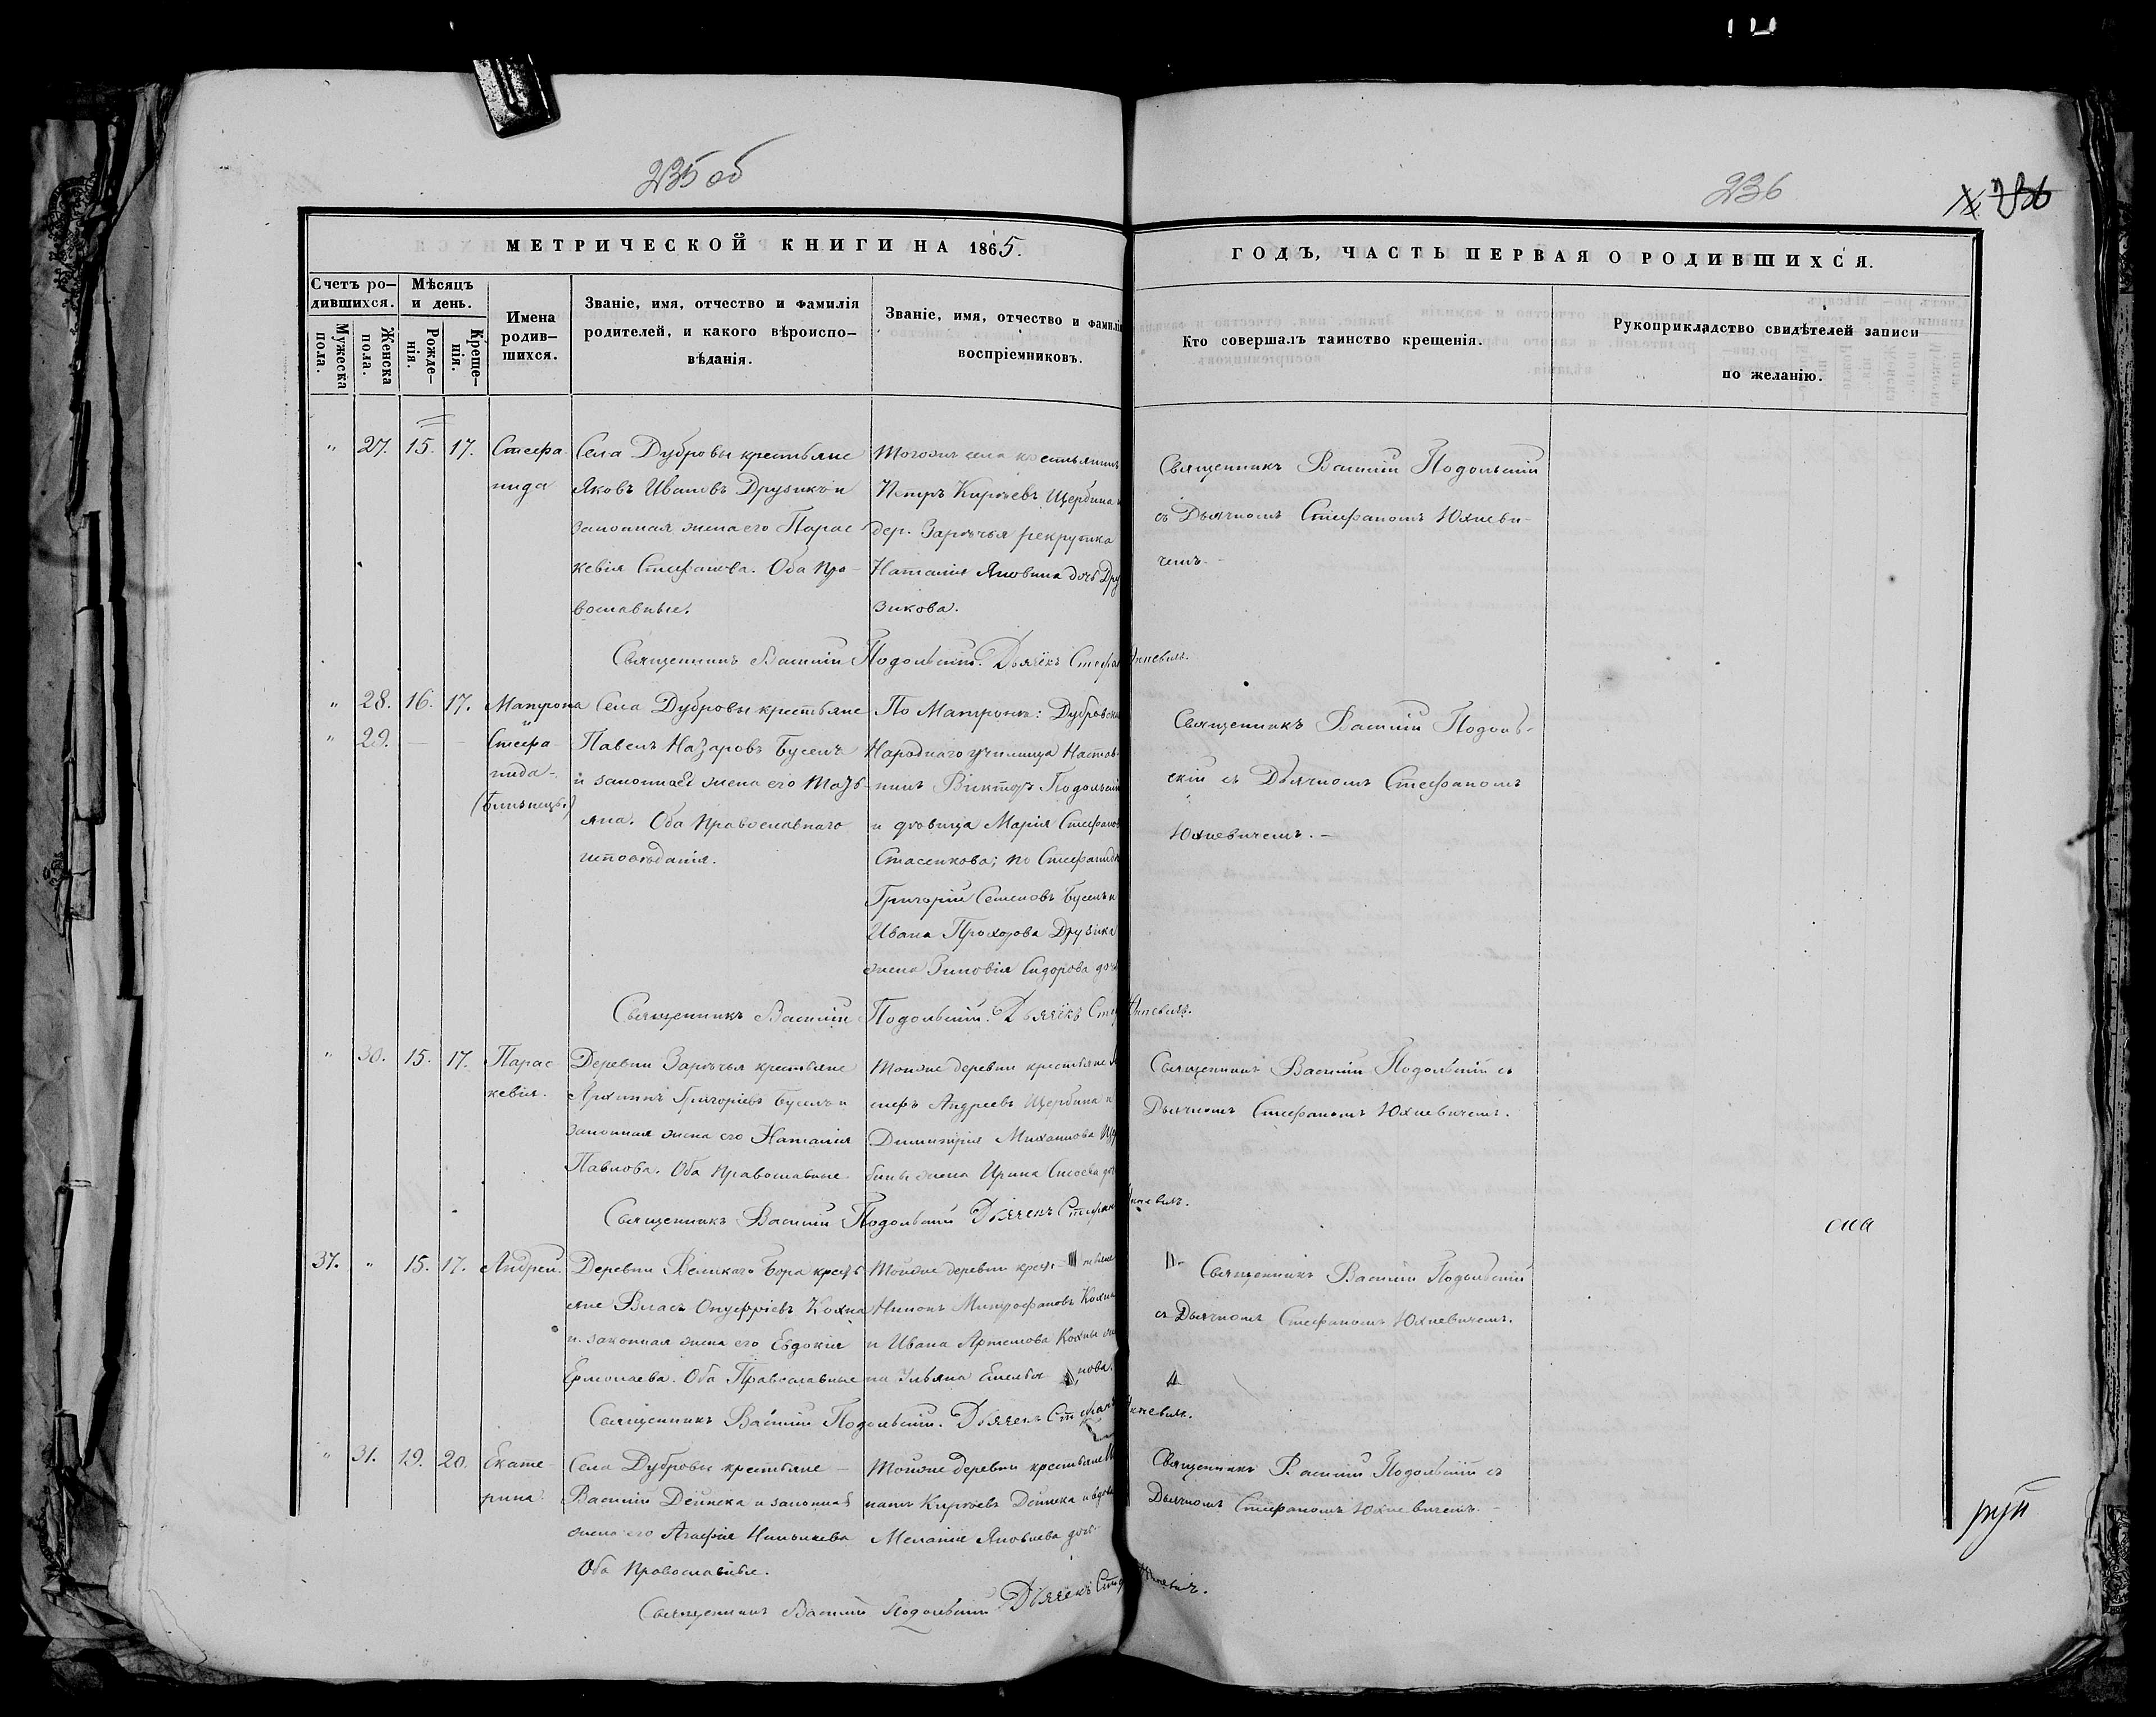 235 об
236
236
МЕТРИЧЕСКОЙ КНИГИ НА 1865.
ГОДЪ, ЧАСТЬ ПЕРВАЯ О РОДИВШИХСЯ.
Счетъ ро-
дившихся.
Мужеска
пола.
Женска
пола.
Мѣсяцъ
и день.
Рожде-
нія.
Креще-
нія.
Имена
родив-
шихся.
Званіе, имя, отчество и фамилія
родителей, и какого вѣроиспо-
вѣданія.
Званіе, имя, отчество и фамилі
воспріемниковъ.
Кто совершалъ таинство крещенія.
Рукоприкладство свидѣтелей записи
по желанію.
" 27. 15. 17.
Стефа-
нида
Села Дубровы крестьяне
Яковъ Ивановъ Друзикъ и
законная жена его Парас
кевія Стефанова. Оба пра-
вославные.
Тогожъ села крестьянинъ
Петръ Кирѣевъ Щербина и
дер. Зарѣчья рекрутка
Наталія Яковина дочь Дру
зикова.
Священникъ Василій Подольскій
съ Дьячкомъ Стефаномъ Юхневи-
чемъ.
Священникъ Василій Подольскій. Дьячекъ Стефан Юхневичъ.
" 28. 16. 17.
" 29. — —
Матрона
и
Стефа-
нида-
(близнецы)
Села Дубровы крестьяне
Павелъ Назаровъ Буселъ
и законная жена его Тать-
яна. Оба Православнаго
исповѣданія.
По Матронѣ: Дубровска
Народнаго училища Настав-
никъ Викторъ Подольскій
и дѣвица Марія Стефанов
Стасенкова; по Стефанидѣ
Григорій Семеновъ Буселъ и
Ивана Прохорова Друзика
жена Зиновія Сидорова доч
Священникъ Василій Подоль-
скій съ Дьячкомъ Стефаномъ
Юхневичемъ. —
Священникъ Василій Подольскій. Дьячекъ Сте Юхневичъ.
" 30. 15. 17.
Парас
кевія.
Деревни Зарѣчья крестьяне
Архипъ Григоріевъ Буселъ и
законная жена его Наталія
Павлова. Оба православные.
Тойже деревни крестьяне
сифъ Андреевъ Щербина и
Димитрія Михаилова Щер
бины жена Ирина доч
Священникъ Василій Подольскій съ
Дьячкомъ Стефаномъ Юхневичемъ.
Священникъ Василій Подольскій Дьячекъ Стефан Юхневичъ.
37. " 15. 17.
Андрей.
Деревни Великаго Бора кресть
яне Власъ Онуфріевъ Кохна
и законная жена его Евдокія
Ермолаева. Оба Православные
Тойже деревни крес тьяне
Никонъ Митрофановъ Кохна
и Ивана Артемова Кохны же
на Ульяна Емелья нова.
Священникъ Василій Подольскій
съ Дьячкомъ Стефаномъ Юхневичемъ.
Священникъ Василій Подольскій. Дьячекъ Стефанъ Юхневичъ.
" 31. 19. 20.
Екате-
рина.
Села Дубровы крестьяне —
Василій Дейнека и законная
жена его Агафія
Оба православные.
Тойже деревни крестьяне
Кирѣевъ Дейнека и вдова
Меланія Яковлева дочь.
Священникъ Василій Подольскій съ
Дьячкомъ Стефаномъ Юхневичемъ. —
Священникъ Василій Подольскій Дьячекъ Стеф Юхневичъ.